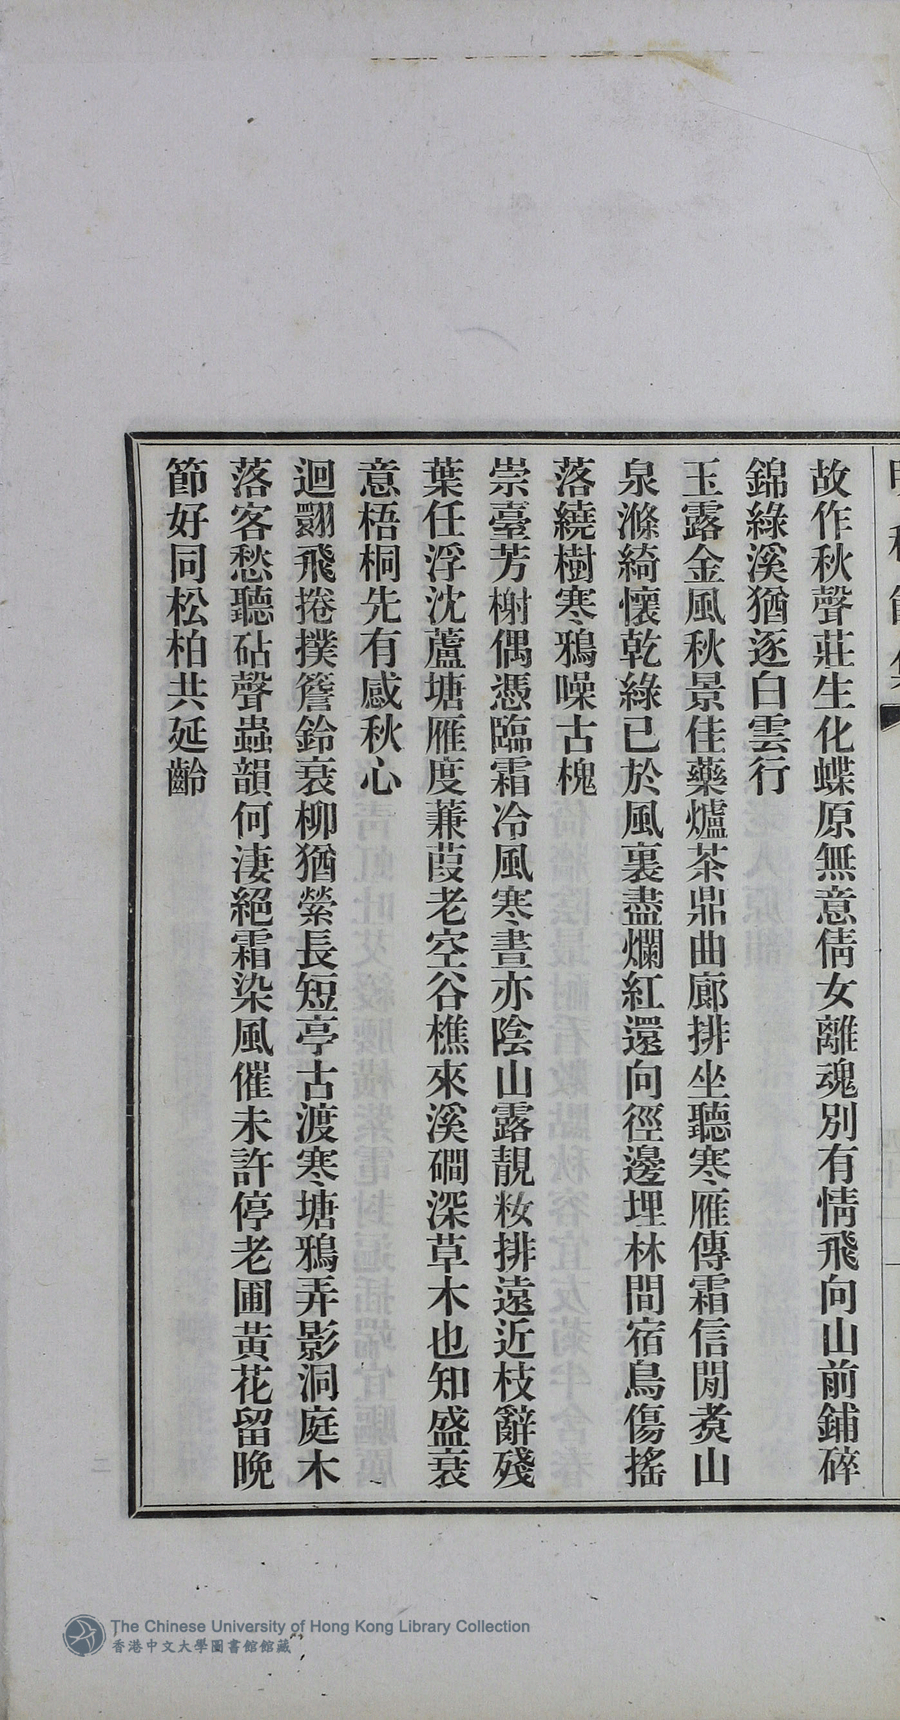 故作秋聲莊生化蝶原無意倩女離魂別有情飛向山前鋪碎
錦綠溪猶逐白雲行
玉露金風秋景佳藥爐茶鼎曲廊排坐聽寒雁傳霜信閒煑山
泉滌綺懷乾綠已於風裏盡爛紅還向徑邊埋林間宿鳥傷搖
落繞樹寒鴉噪古槐
崇臺芳榭偶憑臨霜冷風寒晝亦陰山露靚妝排遠近枝辭殘
葉任浮沈蘆塘雁度蒹葭老空谷樵來溪磵深草木也知盛衰
意梧桐先有感秋心
迴翾飛捲撲簷鈴衰柳猶縈長短亭古渡寒塘鴉弄影洞庭木
落客愁聽砧聲蟲韻何淒絕霜染風催未許停老圃黃花留晚
節好同松柏共延齡
The Chinese University of Hong Kong Library Collection
香港中文大學圖書館館藏